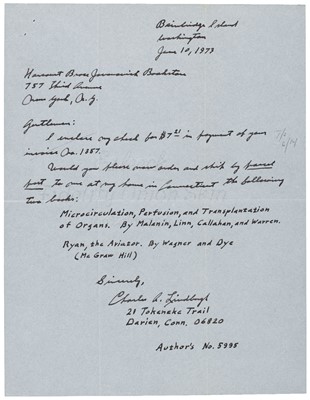 Bainbridge Island
Washington
June 10, 1973
Harcourt Brace Jovanovich Bookstore
757 Third Avenue
New York, N.Y.
Gentlemen:
I enclose my check for $7 21 in payment of your
invoice No. 1357.
Would you please now order and ship by parcel
post to me at my home in Connecticut the following
two books:
Microcirculation, Perfusion, and Transplantation
of Organs. By Malinin, Linn, Callahan, and Warren.
Ryan, the Aviator. By Wagner and Dye
(Mc Graw Hill)
Sincerely,
Charles A. Lindbergh
21 Tokeneke Trail
Darien, Conn. 06820
Author's No. 5995